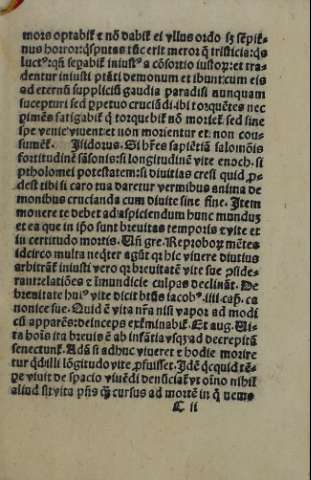 mors optabiť e nō dabiť ei yllus ordo sꝫ sẽpiť-
nus horror: q̃sputas tūc erit meror q̃ tristicia: q̄s
luctꝰ: qñ sepabiť iniustꝰ a cōsortio iustoꝝ: et tra-
dentur iniusti ptāti demonum et ibunt: cum eis
ad eternū suppliciū gaudia paradisi nunquam
suscepturi sed ꝑpetuo cruciādi. ibi torquētes nec
ꝑimēs fatigabiť q̄ torquebiť nō morieť sed sine
spe venie viuent: et non morientur et: non con-
sumēť. Isidorus. Si hr̄es sapiētiā salomōis
fortitudinē sāsonis: si longitudinē vite enoch. si
ptholomei potestatem: si diuitias cresi quid ꝓ-
dest tibi si caro tua daretur vermibus anima de
monibus crucianda cum diuite sine fine. Item
monere te debet ad aspiciendum hunc mundūꝫ
et ea que in ip̄o sunt breuitas temporis ⁊ vite et
in certitudo mortis. Uñ gre. Reproborꝫ mētes
idcirco multa neq̄ter agūt qꝛ hic viuere diutius
arbitrāť iniusti vero qꝛ breuitatē vite sue ꝓside-
rant: relatiões ⁊ īmundicie culpas declināť. De
breuitate huiꝰ vite dicit btūs iacobꝰ. iiii. caṗ. ca
nonice sue. Quid ē vita nr̄a nisi vapor ad modi
cū apparēs: deinceps exťminabiť. Et aug. Ui-
ta hoīs ita breuis ē ab infātia vsqꝫ ad decrepitā
senectutē. Adā si adhuc viueret ⁊ hodie morire
tur qd illi lōgitudo vite ꝓfuisset. Idē q̄cquid tē-
ꝑe viuit de spacio viuēdi demiťur vt oīno nihil
aliud sit vita p̄ns q̄ꝫ cursus ad mortē in q̄ nemo
C ii